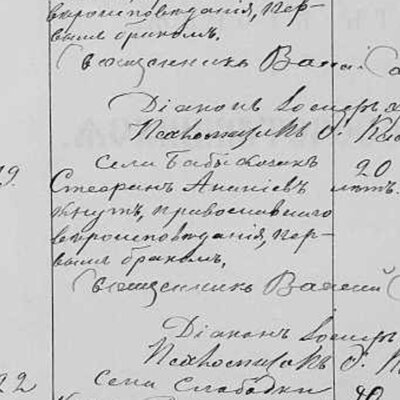 вѣроисповѣданія, пер-
вымъ бракомъ.
Священникъ Васи
Діаконъ Іосифъ
Псаломщикъ
Села Бабы козакъ
19. Стефанъ Ананіевъ 20 лѣтъ.
Кнутъ, православнаго
вѣроисповѣданія, пер-
вымъ бракомъ.
Священникъ Василий
Діаконъ Іосифъ
Псаломщикъ
22 Села Слабодки